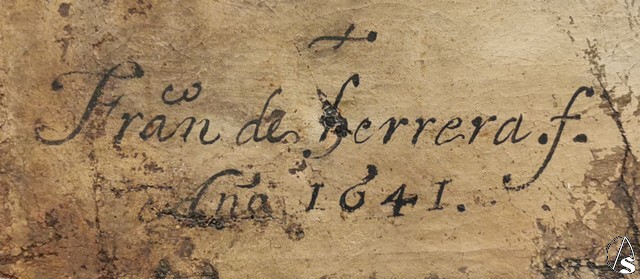 Fran^co de herrera.f.
1641.